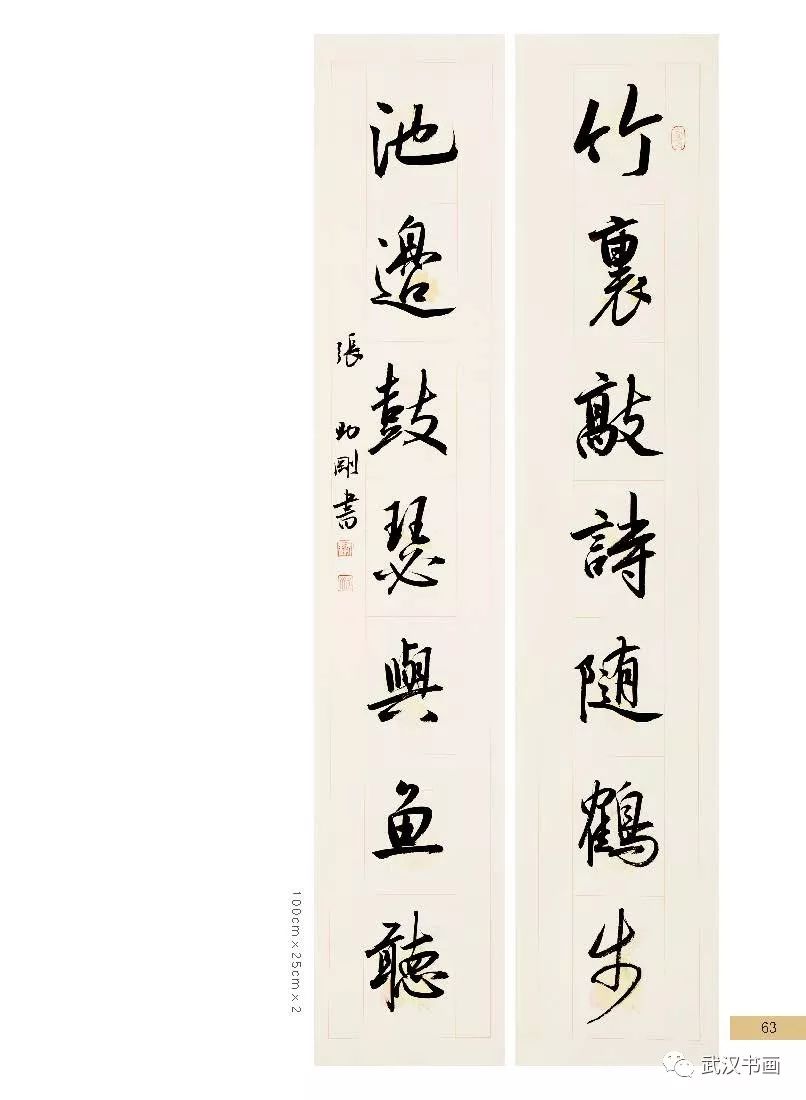 竹裏敲詩随鶴步
池邊鼓瑟與鱼聽
張助剛書
100cm×25cm×2
63
武汉书画